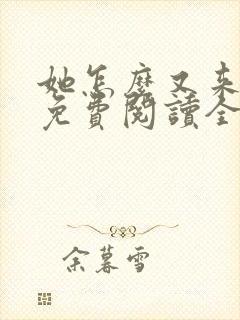 她怎麼又來
免費閱讀全
余暮雪